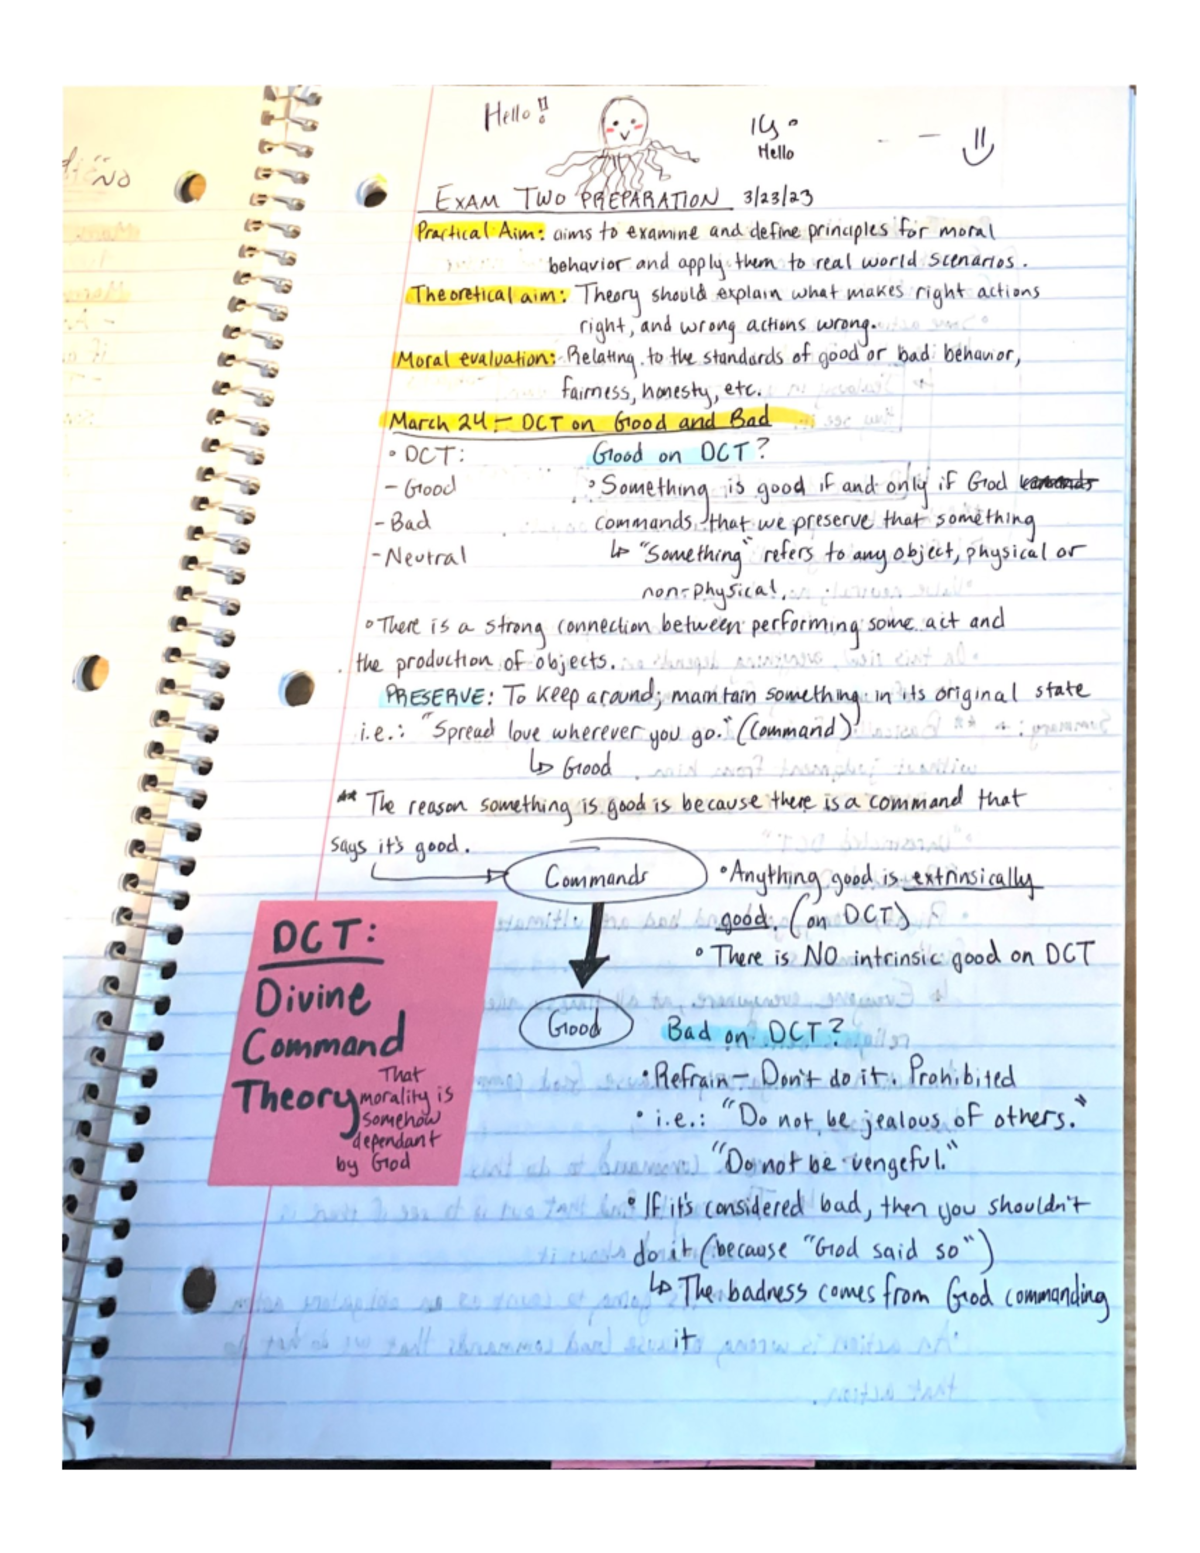 Hello!!
Hello
EXAM TWO PREPARATION 3/23/23
Practical Aim: aims to examine and define principles for moral
behavior and apply them to real world scenarios.
Theoretical aim: Theory should explain what makes right actions
right, and wrong actions wrong.
Moral evaluation: Relating to the standards of good or bad behavior,
fairness, honesty, etc.
March 24 - DCT on Good and Bad
• DCT:
- Good
- Bad
- Neutral
Good on DCT?
• Something is good if and only if God
commands that we preserve that something
↳ "Something" refers to any object, physical or
non-physical.
• There is a strong connection between performing some act and
the production of objects.
PRESERVE: To keep around; maintain something in its original state
i.e.: "Spread love wherever you go." (Command)
↳ Good
** The reason something is good is because there is a command that
says it's good.
Commands
Good
• Anything good is extrinsically
good. (on DCT)
• There is NO intrinsic good on DCT
DCT:
Divine
Command
Theory
That
morality is
somehow
dependant
by God
Bad on DCT?
• Refrain - Don't do it. Prohibited
• i.e.: "Do not be jealous of others."
"Do not be vengeful."
• If it's considered bad, then you shouldn't
do it (because "God said so")
↳ The badness comes from God commanding
it